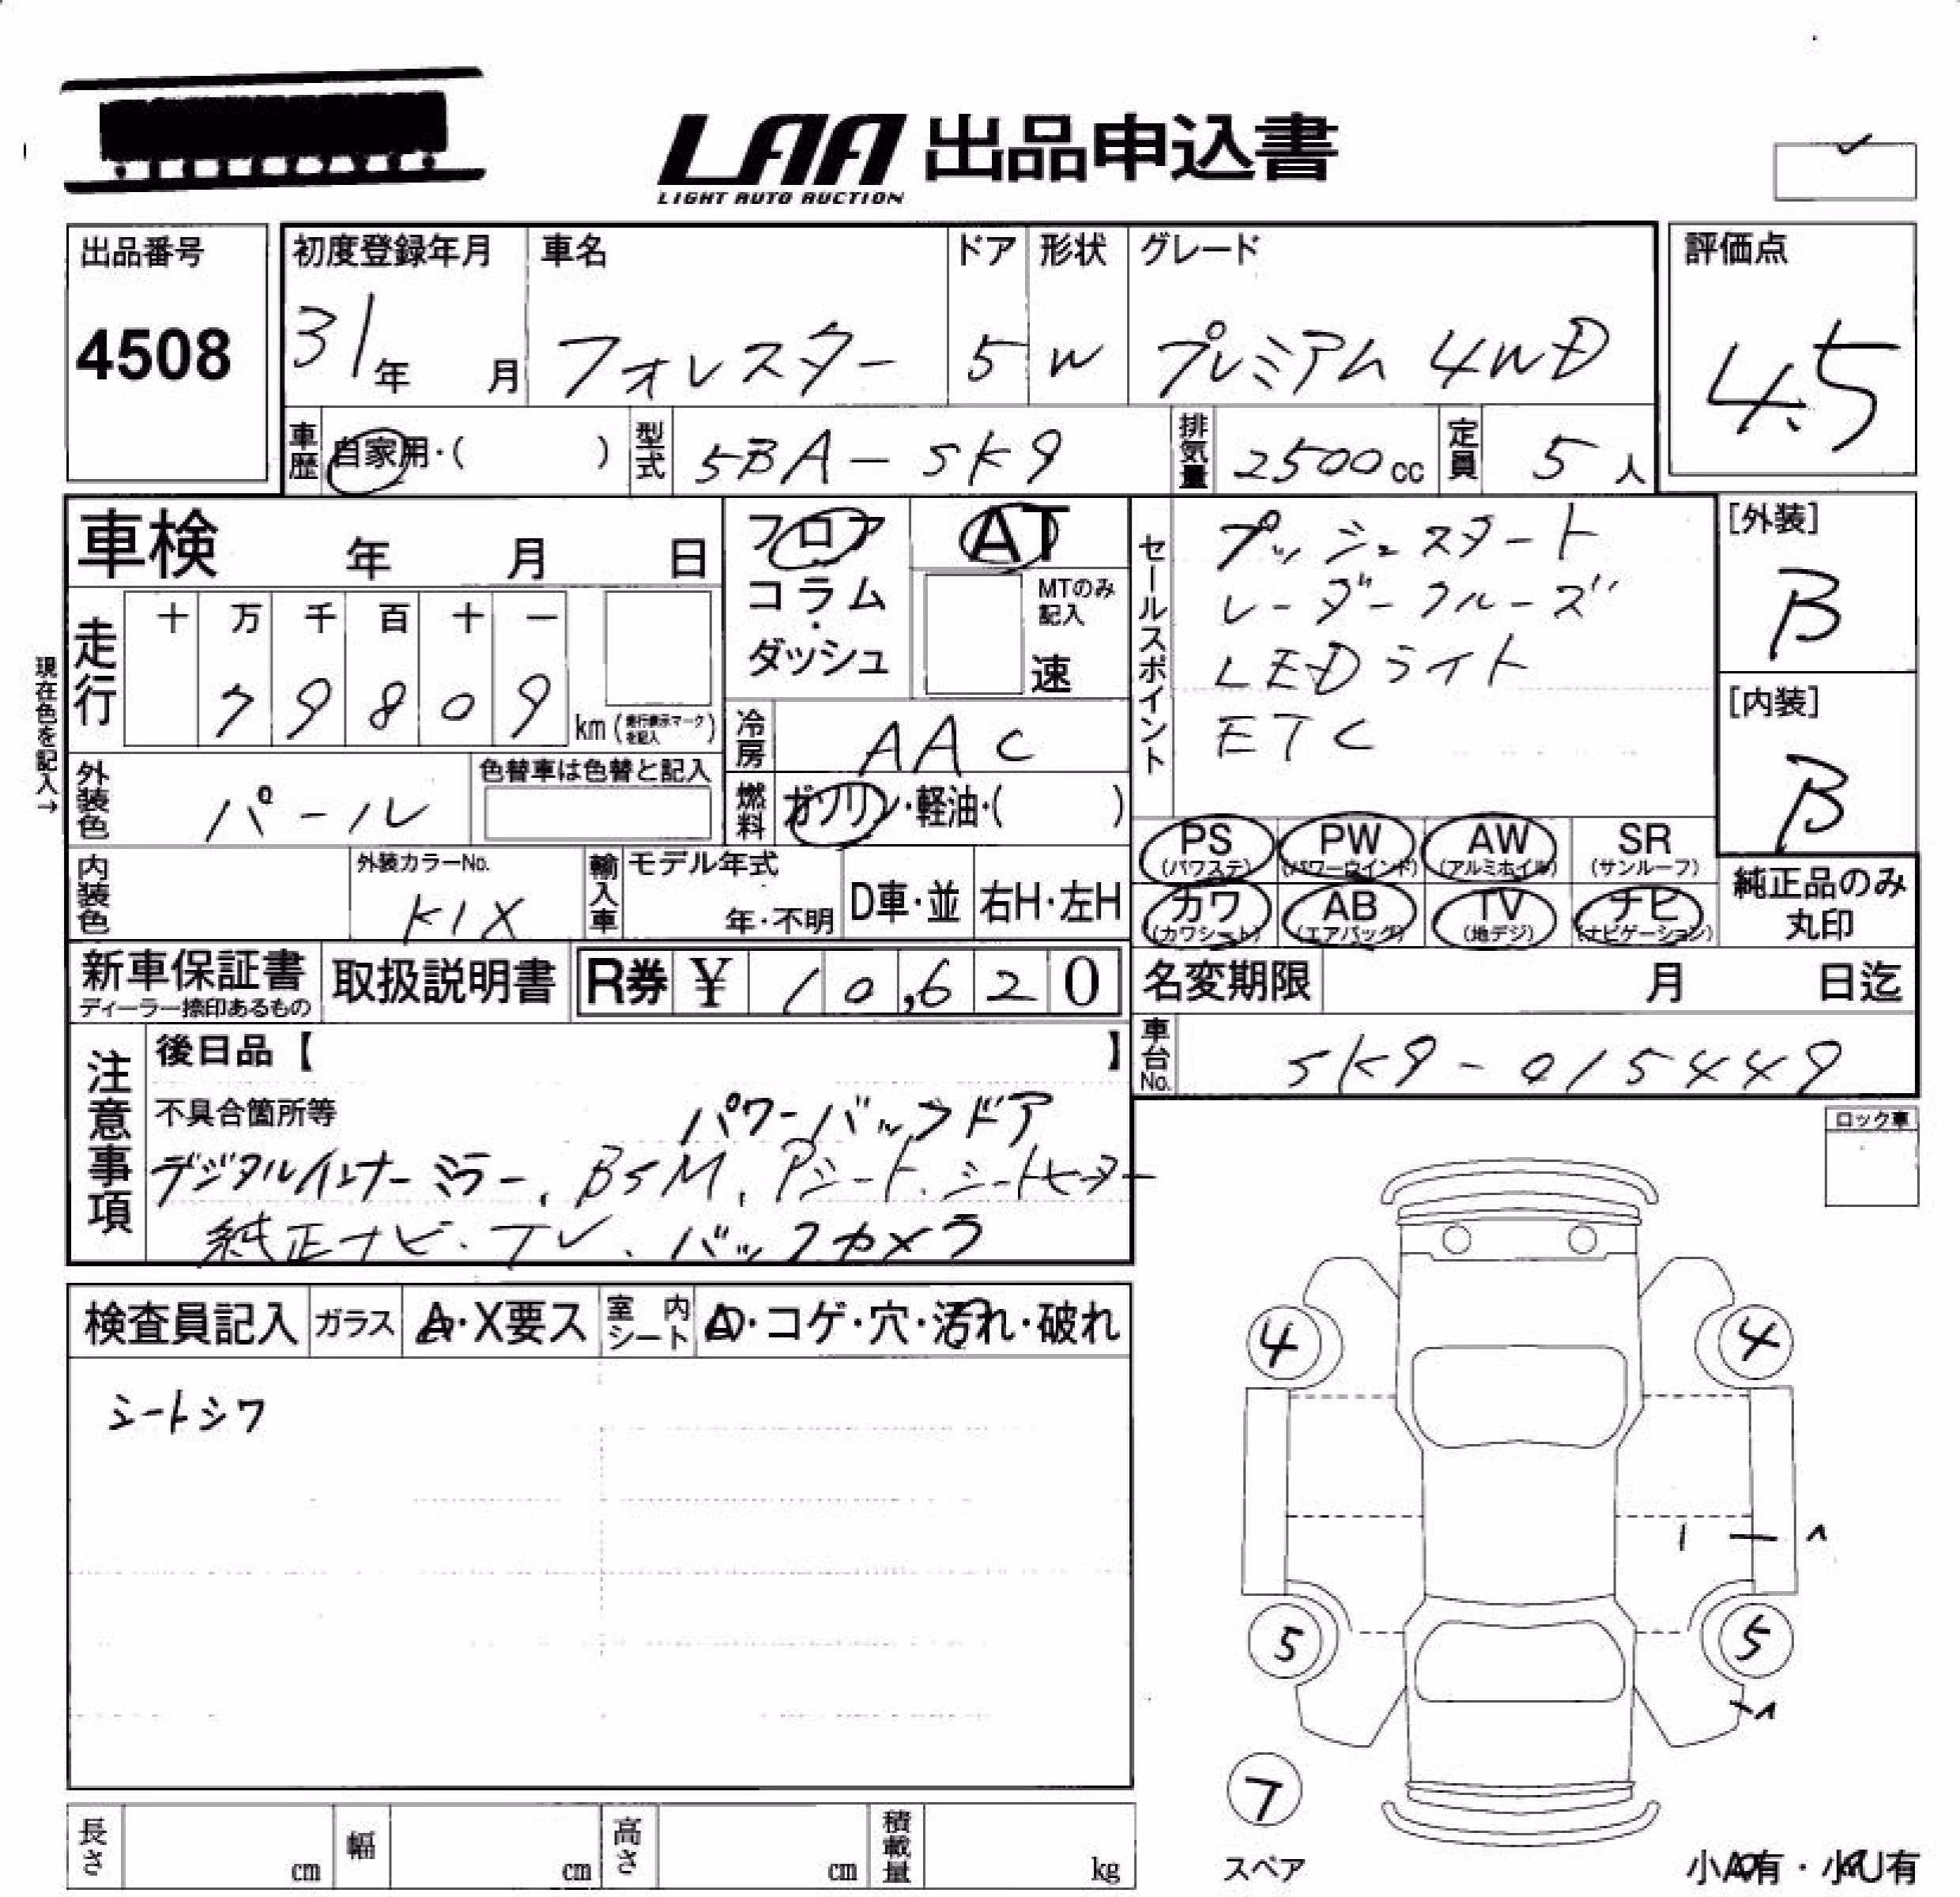 LAA 出品申込書
LIGHT AUTO AUCTION
出品番号
4508
初度登録年月
31年 月
車名
フォレスター
ドア
5
形状
W
グレード
プレミアム 4WD
評価点
4.5
車歴
自家用・( )
型式
5BA-SK9
排気量
2500cc
定員
5人
車検 年 月 日
フロア
コラム
・
ダッシュ
AT
MTのみ
記入
速
セールスポイント
プッシュスタート
レーダークルーズ
LEDライト
ETC
[外装]
B
[内装]
B
現在色を記入→
走行
十 万 千 百 十 一
7 9 8 0 9
km(走行表示マークを記入)
冷房
AAC
外装色
パール
色替車は色替と記入
燃料
ガソリン・軽油・( )
PS
(パワステ)
PW
(パワーウインド)
AW
(アルミホイル)
SR
(サンルーフ)
内装色
外装カラーNo.
K1X
輸入車
モデル年式
年・不明
D車・並
右H・左H
カワ
(カワシート)
AB
(エアバッグ)
TV
(地デジ)
ナビ
(ナビゲーション)
純正品のみ
丸印
新車保証書
ディーラー捺印あるもの
取扱説明書
R券 ¥ 10,620
名変期限 月 日迄
車台No.
SK9-015449
注意事項
後日品【 】
不具合箇所等
パワーバックドア
デジタルインナーミラー、BSM、Pシート、シートヒーター
純正ナビ・TV、バックカメラ
ロック車
検査員記入
ガラス
A・X要ス
室内
シート
A・コゲ・穴・汚れ・破れ
シートシワ
4 4
5 5
7
スペア
長さ cm
幅 cm
高さ cm
積載量 kg
小A有・小U有